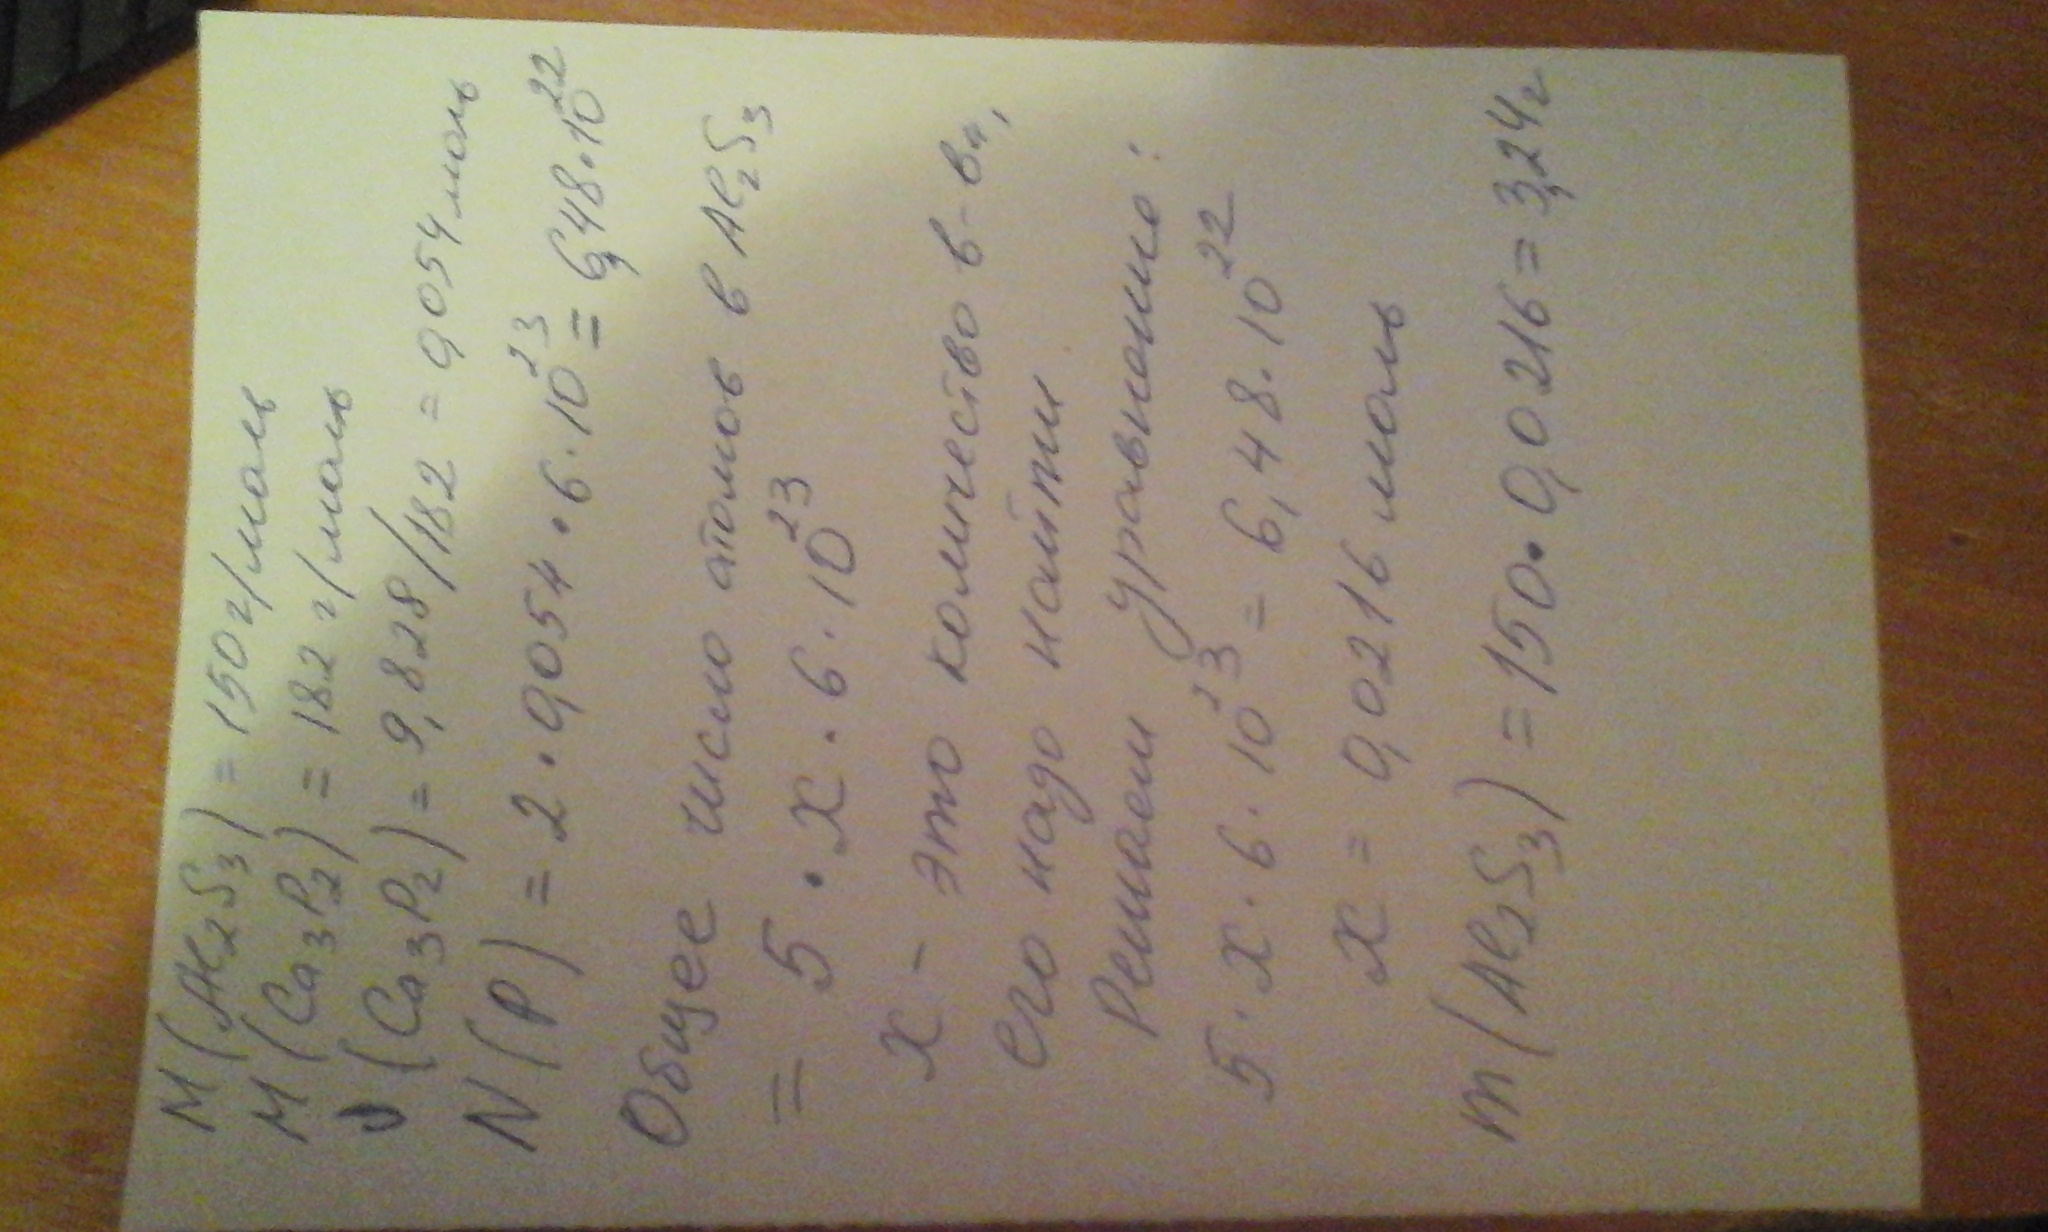 M(Al₂S₃) = 150 г/моль
M(Ca₃P₂) = 182 г/моль
ν(Ca₃P₂) = 9,828/182 = 0,054 моль
N(P) = 2 · 0,054 · 6 · 10²³ = 6,48 · 10²²
Общее число атомов в Al₂S₃
= 5 · x · 6 · 10²³
x - это количество в-ва,
его надо найти
Решаем уравнение:
5 · x · 6 · 10²³ = 6,48 · 10²²
x = 0,0216 моль
m(Al₂S₃) = 150 · 0,0216 = 3,24 г